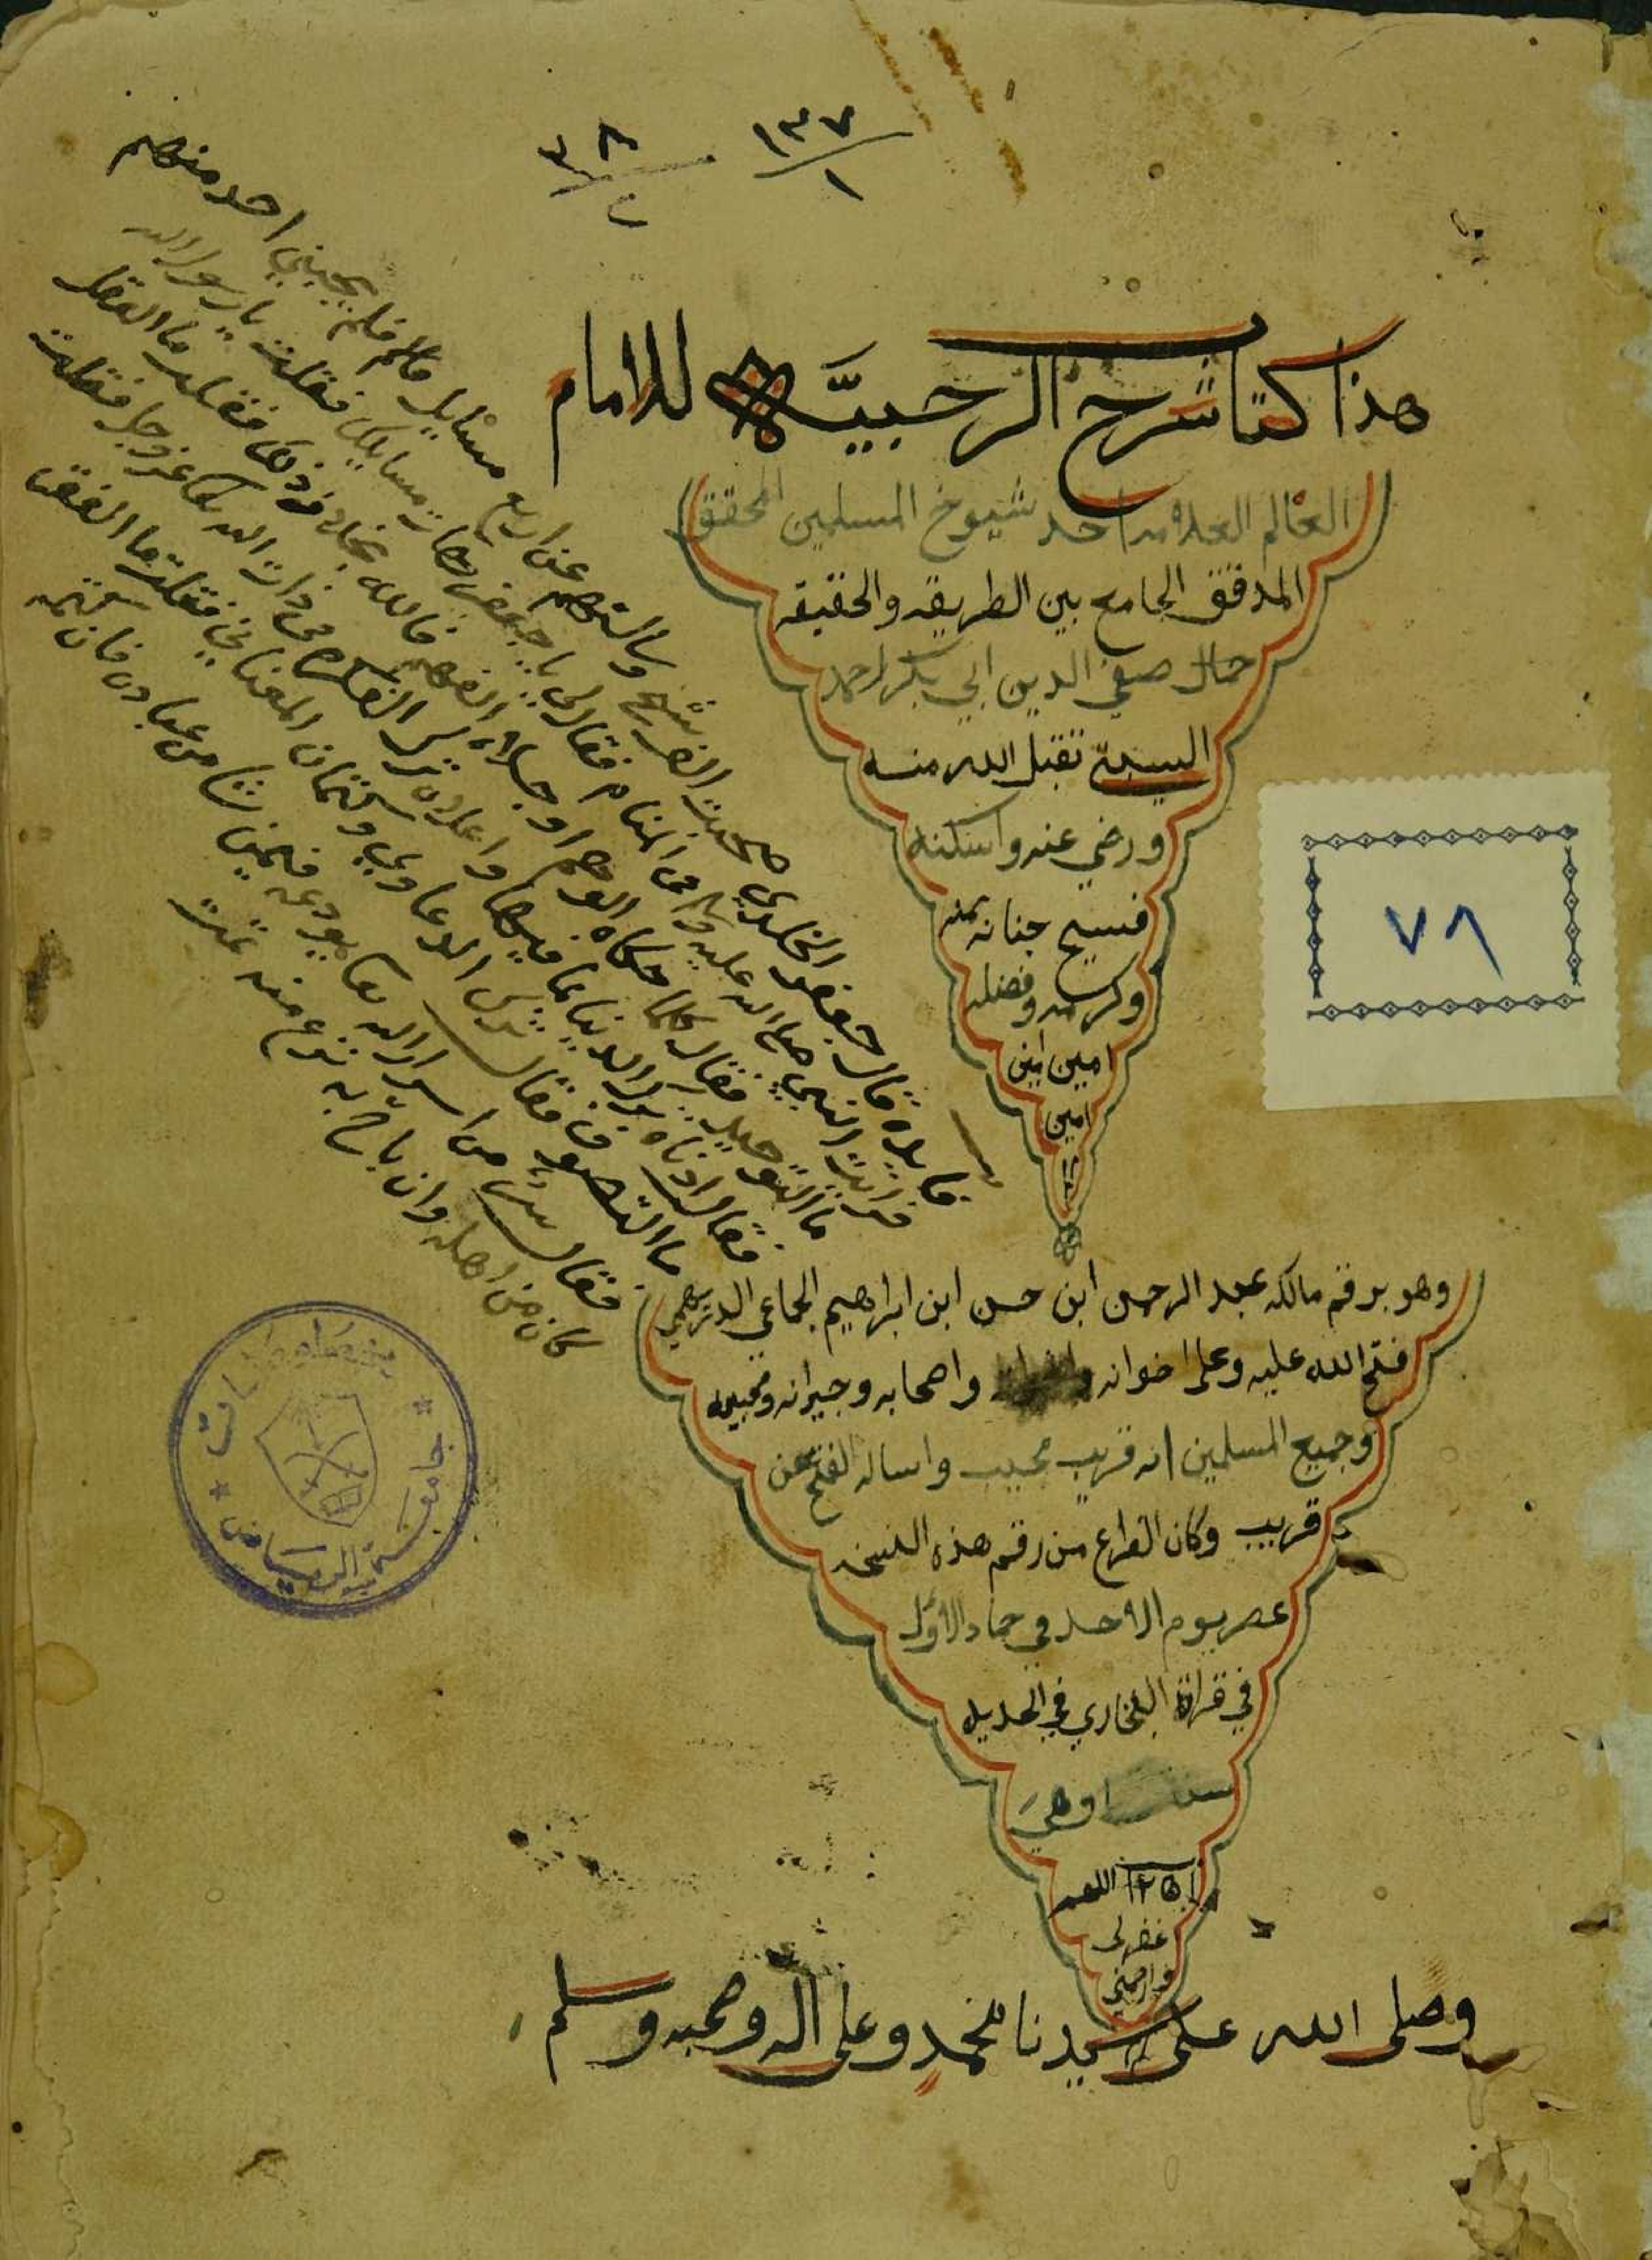 ١٣٧
١
٨
هذا كتاب شرح الرحبيّه للامام
العالم العلامه احد شيوخ المسلمين المحقق
المدقق الجامع بين الطريقه والحقيقه
جمال صفي الدين ابي بكر احمد
السبتي تقبل الله منه
ورضي عنه واسكنه
فسيح جنانه بمنه
وكرمه وفضله
امين امين
امين
٧٨
وهو برقم مالكه عبد الرحمن ابن حسن ابن ابراهيم الجماعي
فتح الله عليه وعلى اخوانه واصحابه وجيرانه ومحبيه
وجميع المسلمين انه قريب مجيب واساله الفتح عن
قريب وكان الفراغ من رقم هذه النسخه
عصر يوم الاحد في جماد الاول
في قراة البخاري في
سنة وهي
اللهم
غفر لي
وارحمني
وصلى الله على سيدنا محمد وعلى اله وصحبه وسلم
فايده قال جعفر الخلدي صحبت الف شيخ وسالتهم عن اربع مسايل فلم يجيبني احد منهم
فرايت النبي صلى الله عليه وسلم في المنام فقال لي يا جعفر هات مسايلك فقلت يارسول الله
ما التوحيد فقال كلما حكاه الوهم او جلاه الفهم فالله بخلاف ذلك فقلت ما العقل
فقال ادناه ترك الدنيا بما فيها واعلاه ترك الفكره في ذات الله تعالى عز وجل فقلت
ما التصوف فقال ترك الدعاوي وكتمان المعاني فقلت ما الفقر
فقال سر من اسرار الله تعالى يودعه فيمن شا من عباده فان كتمه
كان من اهله وان باح به نزع منه
جامعة الرياض